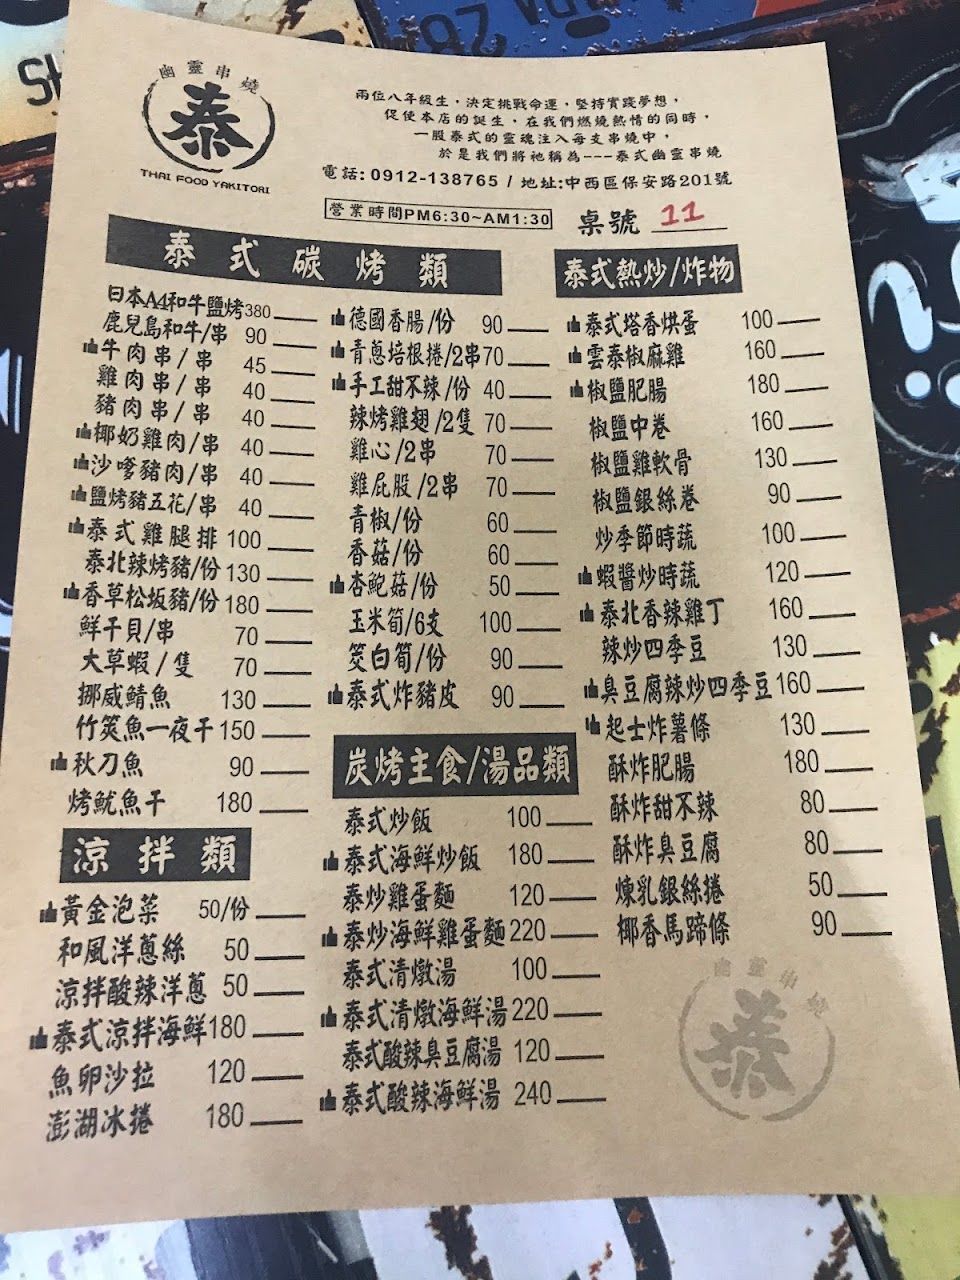 幽靈串燒
泰
THAI FOOD YAKITORI
兩位八年級生，決定挑戰命運，堅持實踐夢想，
促使本店的誕生，在我們燃燒熱情的同時，
一股泰式的靈魂注入每支串燒中，
於是我們將祂稱為---泰式幽靈串燒
電話:0912-138765 / 地址:中西區保安路201號
營業時間PM6:30~AM1:30
桌號 11
泰式碳烤類
日本A4和牛鹽烤380
鹿兒島和牛/串 90
牛肉串/串 45
雞肉串/串 40
豬肉串/串 40
椰奶雞肉/串 40
沙嗲豬肉/串 40
鹽烤豬五花/串 40
泰式雞腿排 100
泰北辣烤豬/份 130
香草松坂豬/份 180
鮮干貝/串 70
大草蝦/隻 70
挪威鯖魚 130
竹筴魚一夜干 150
秋刀魚 90
烤魷魚干 180
德國香腸/份 90
青蔥培根捲/2串 70
手工甜不辣/份 40
辣烤雞翅/2隻 70
雞心/2串 70
雞屁股/2串 70
青椒/份 60
香菇/份 60
杏鮑菇/份 50
玉米筍/6支 100
筊白筍/份 90
泰式炸豬皮 90
涼拌類
黃金泡菜 50/份
和風洋蔥絲 50
涼拌酸辣洋蔥 50
泰式涼拌海鮮180
魚卵沙拉 120
澎湖冰捲 180
炭烤主食/湯品類
泰式炒飯 100
泰式海鮮炒飯 180
泰炒雞蛋麵 120
泰炒海鮮雞蛋麵220
泰式清燉湯 100
泰式清燉海鮮湯220
泰式酸辣臭豆腐湯 120
泰式酸辣海鮮湯 240
泰式熱炒/炸物
泰式塔香烘蛋 100
雲泰椒麻雞 160
椒鹽肥腸 180
椒鹽中卷 160
椒鹽雞軟骨 130
椒鹽銀絲卷 90
炒季節時蔬 100
蝦醬炒時蔬 120
泰北香辣雞丁 160
辣炒四季豆 130
臭豆腐辣炒四季豆160
起士炸薯條 130
酥炸肥腸 180
酥炸甜不辣 80
酥炸臭豆腐 80
煉乳銀絲捲 50
椰香馬蹄條 90
幽靈串燒
泰